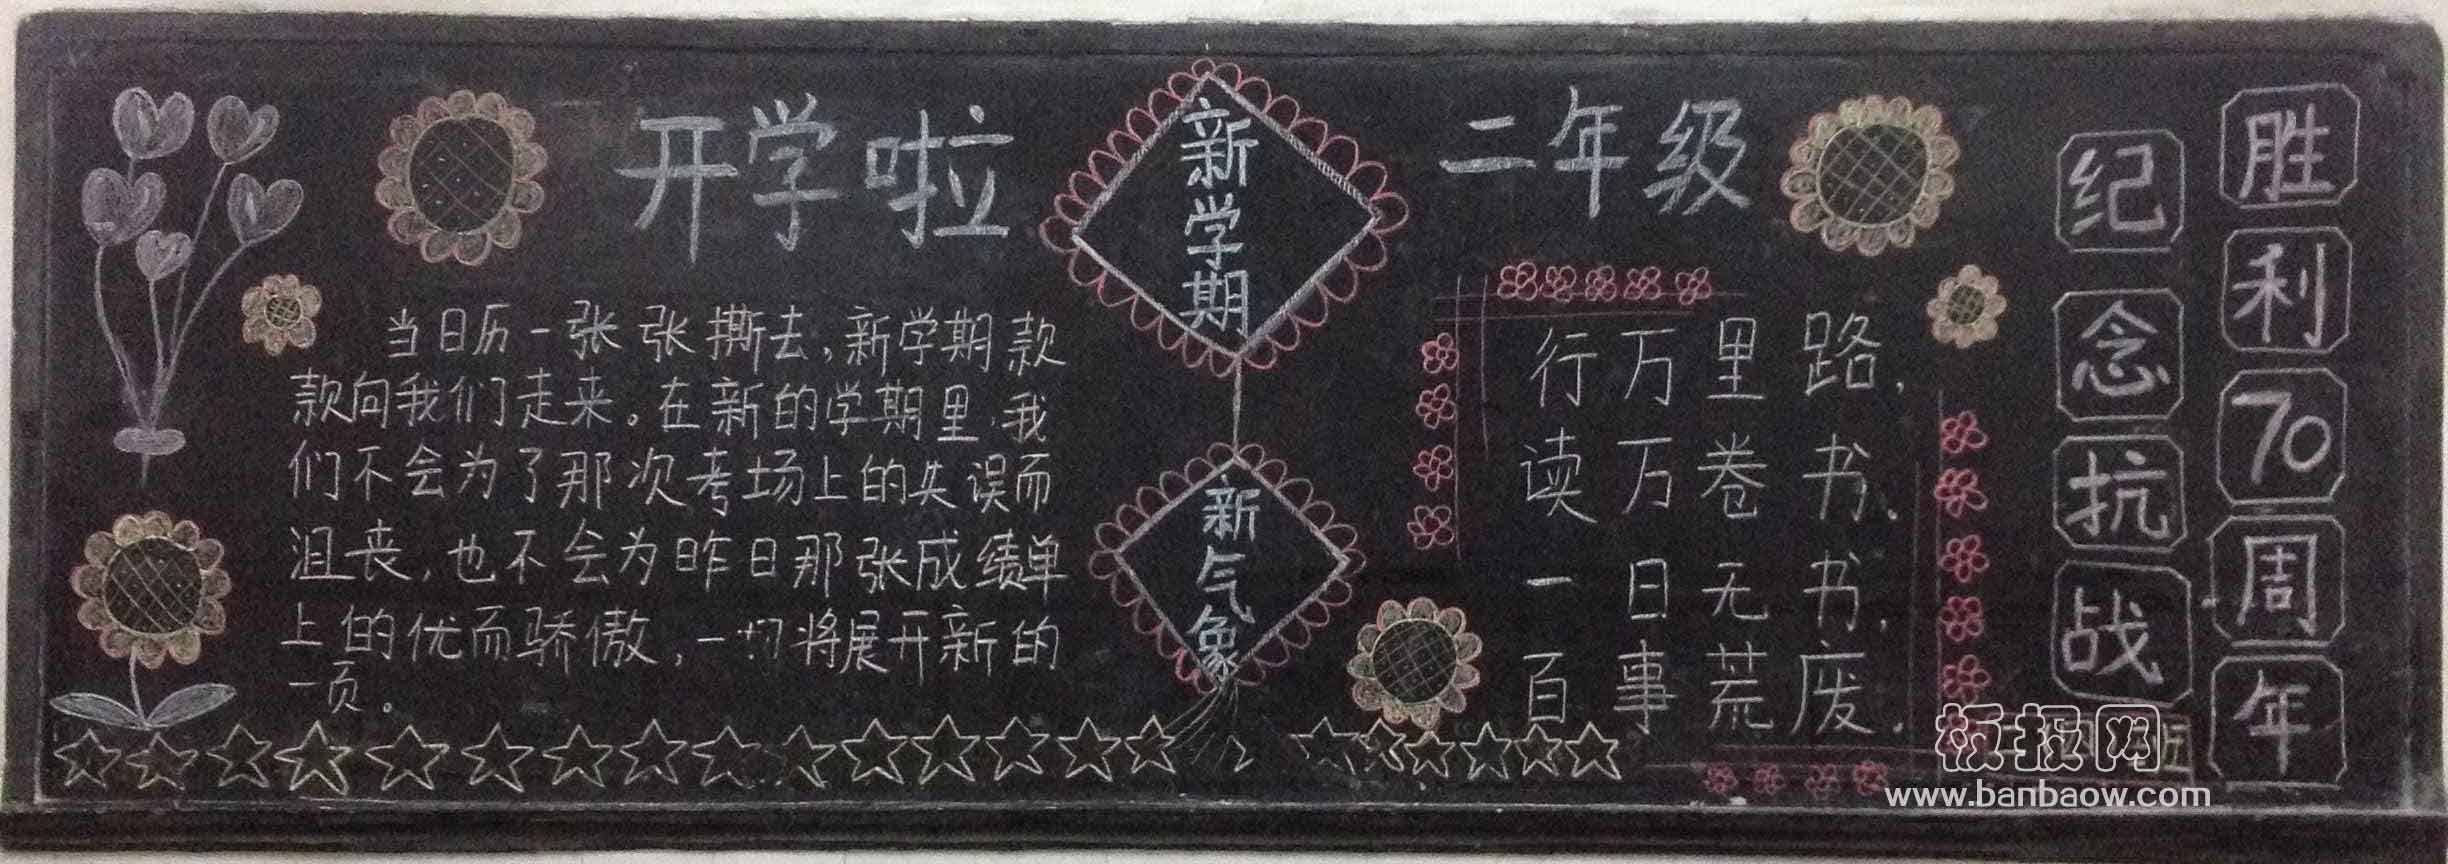 开学啦
当日历一张张撕去,新学期款
款向我们走来。在新的学期里,我
们不会为了那次考场上的失误而
沮丧,也不会为昨日那张成绩单
上的优而骄傲,一切将展开新的
一页。
新学期
新气象
二年级
行万里路,
读万卷书、
一日无书,
百事荒废.
纪念抗战
胜利70周年
板报网
www.banbaow.com